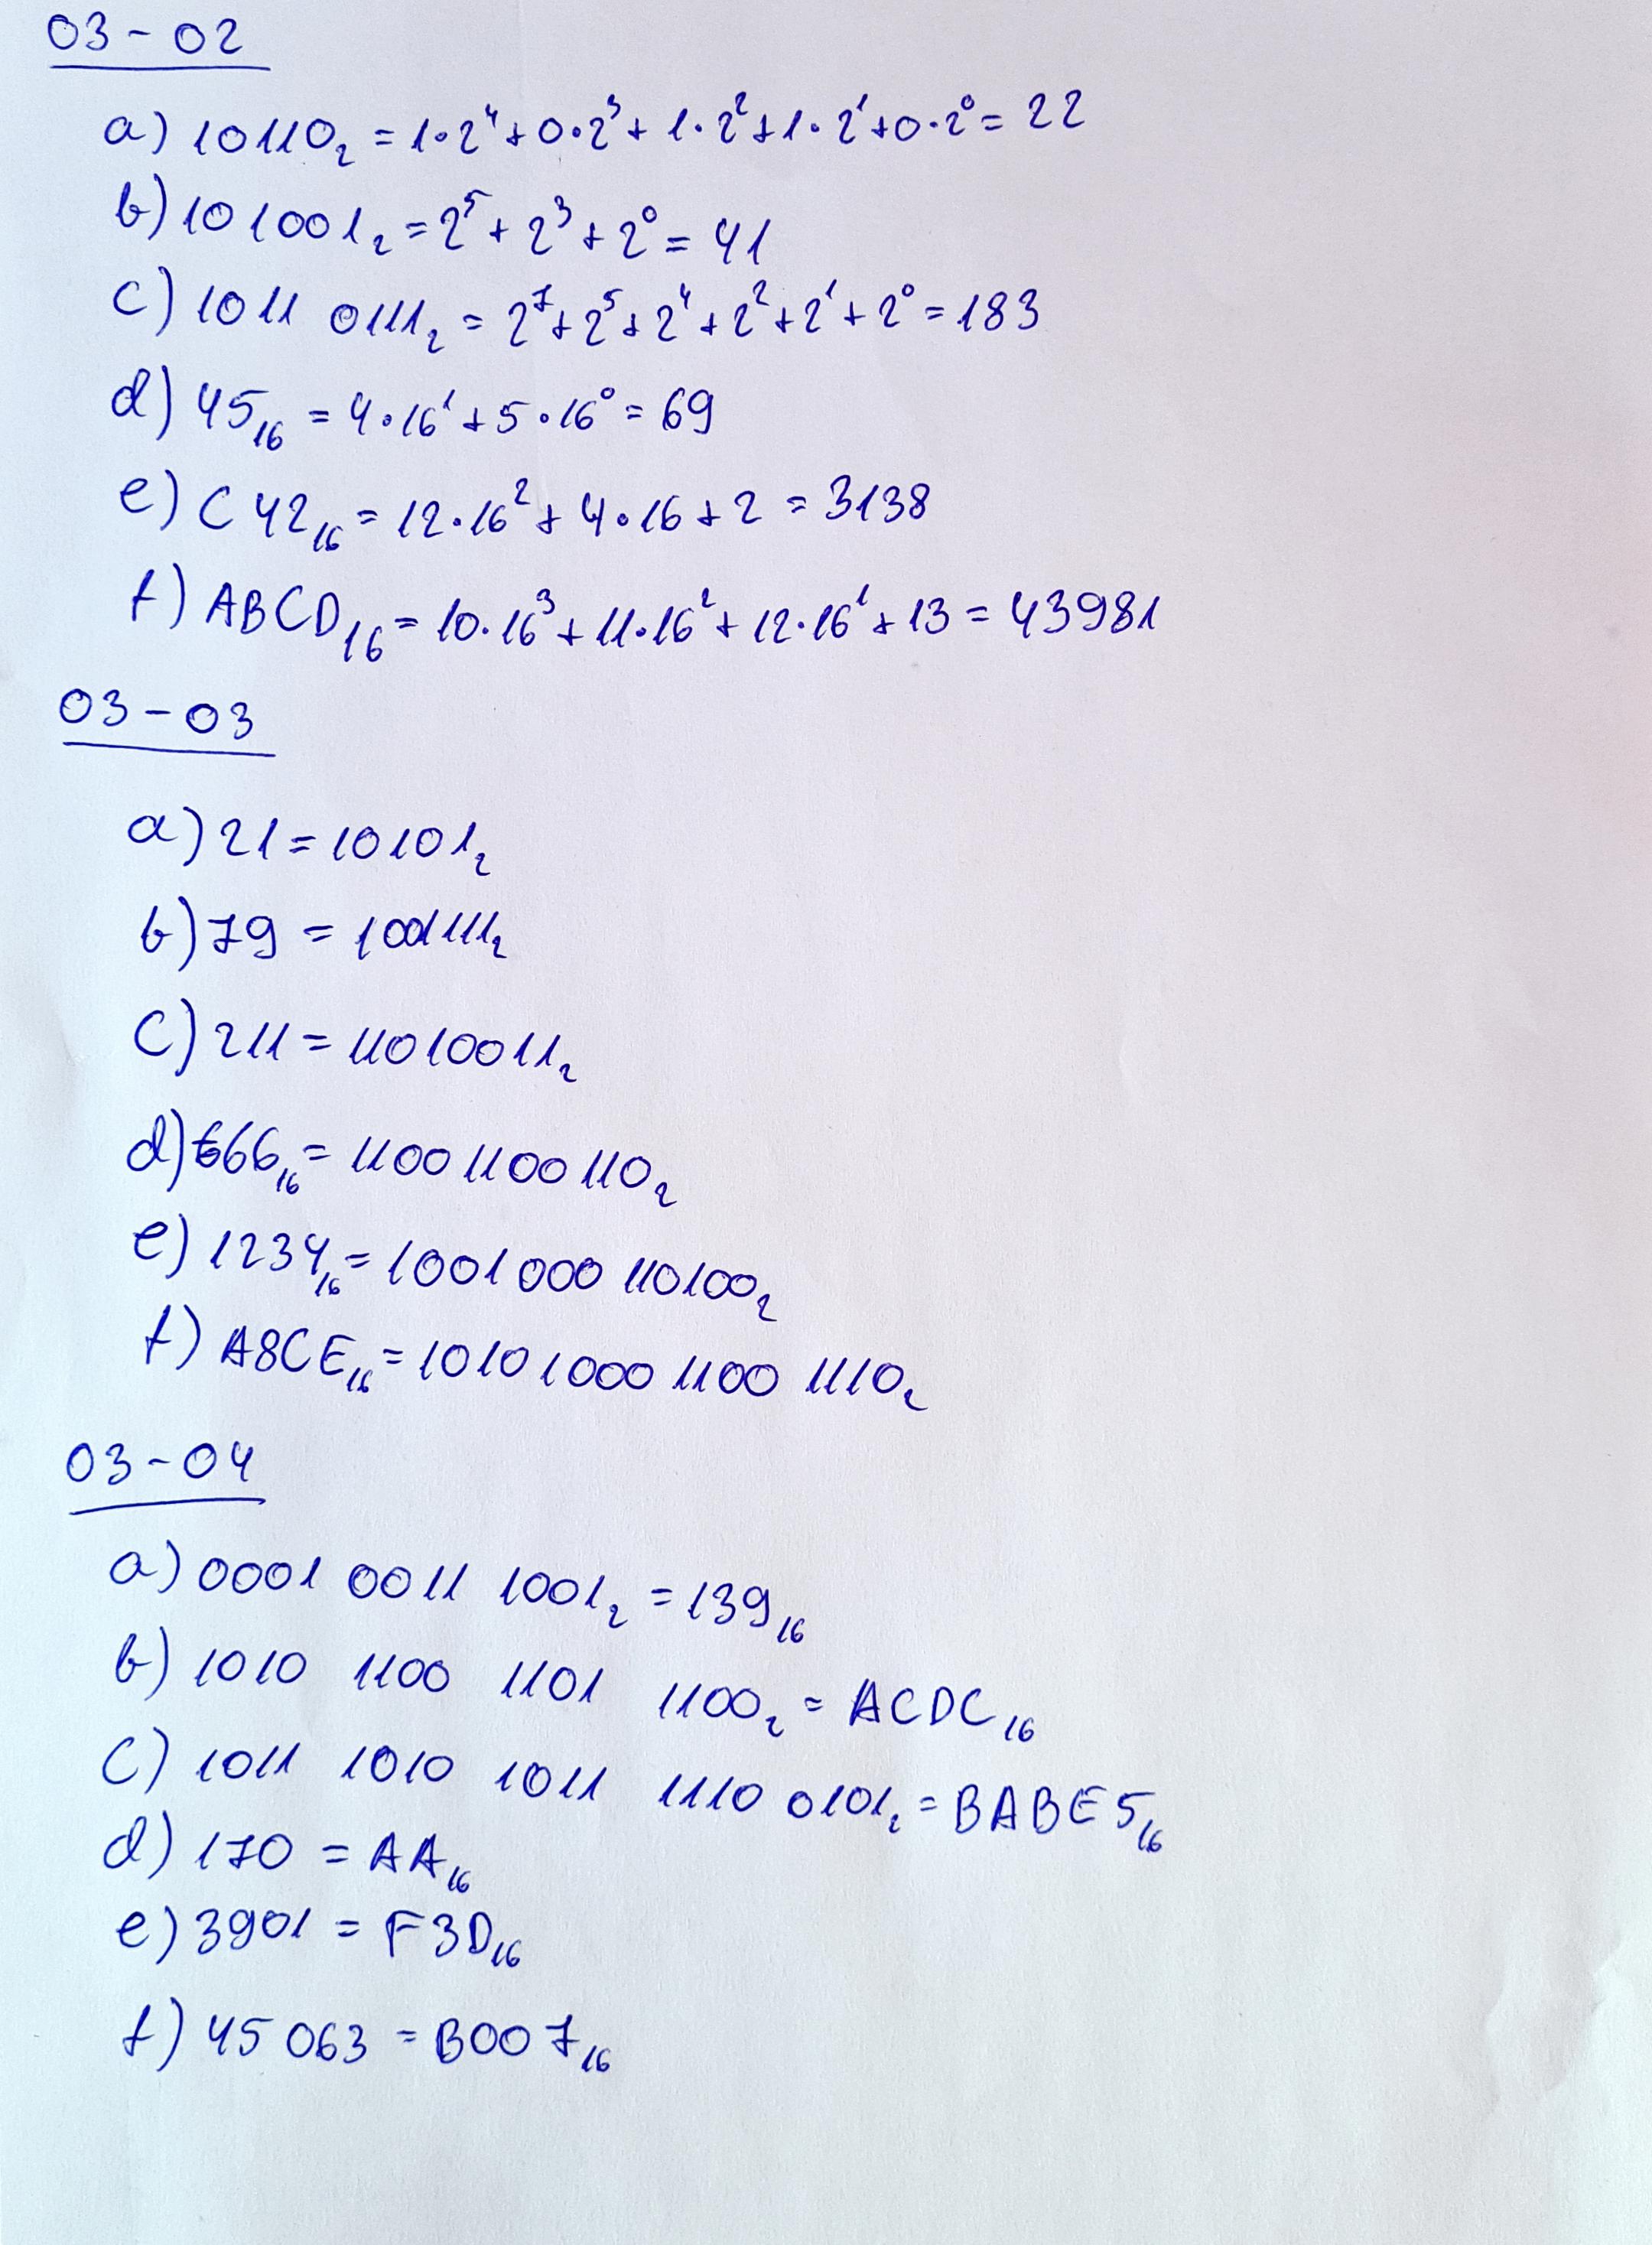 03-02
a) 10110₂ = 1·2⁴+0·2³+1·2²+1·2¹+0·2⁰= 22
b) 101001₂ = 2⁵+2³+2⁰= 41
c) 1011 0111₂ = 2⁷+2⁵+2⁴+2²+2¹+2⁰=183
d) 45₁₆ = 4·16¹+5·16⁰= 69
e) C42₁₆ = 12·16²+4·16+2 = 3138
f) ABCD₁₆ = 10·16³+11·16²+12·16¹+13 = 43981
03-03
a) 21 = 10101₂
b) 79 = 1001111₂
c) 211 = 11010011₂
d) 666₁₆ = 11001100110₂
e) 1234₁₆ = 1001000 110100₂
f) A8CE₁₆ = 1010 1000 1100 1110₂
03-04
a) 0001 0011 1001₂ = 139₁₆
b) 1010 1100 1101 1100₂ = ACDC₁₆
c) 1011 1010 1011 1110 0101₂ = BABE5₁₆
d) 170 = AA₁₆
e) 3901 = F3D₁₆
f) 45 063 = B007₁₆